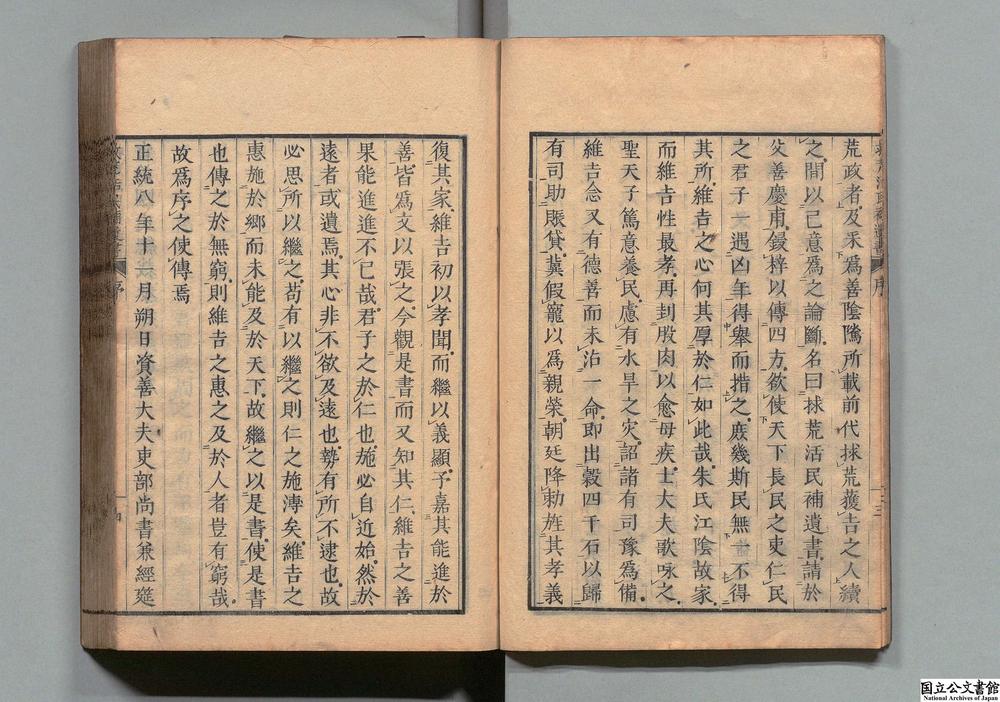 荒政者及采爲善陰隲所載前代捄荒獲吉之人續
之間以己意爲之論斷名曰捄荒活民補遺書請於
父善慶甫鋟梓以傳四方欲使天下長民之吏仁民
之君子一遇凶年得舉而措之庶幾斯民無一不得
其所維吉之心何其厚於仁如此哉朱氏江陰故家
而維吉性最孝再刲股肉以愈母疾士大夫歌咏之
聖天子篤意養民慮有水旱之灾詔諸有司豫爲備
維吉念又有德善而未沾一命即出穀四千石以歸
有司助賑貸冀假寵以爲親榮朝廷降勅旌其孝義
復其家維吉初以孝聞而繼以義顯予嘉其能進於
善皆爲文以張之今觀是書而又知其仁維吉之善
果能進進不已哉君子之於仁也施必自近始然於
遠者或遺焉其心非不欲及遠也勢有所不逮也故
必思所以繼之苟有以繼之則仁之施溥矣維吉之
惠施於鄉而未能及於天下故繼之以是書使是書
也傳之於無窮則維吉之惠之及於人者豈有窮哉
故爲序之使傳焉
正統八年十一月朔日資善大夫吏部尚書兼經筵
序
序
三
四
国立公文書館
National Archives of Japan